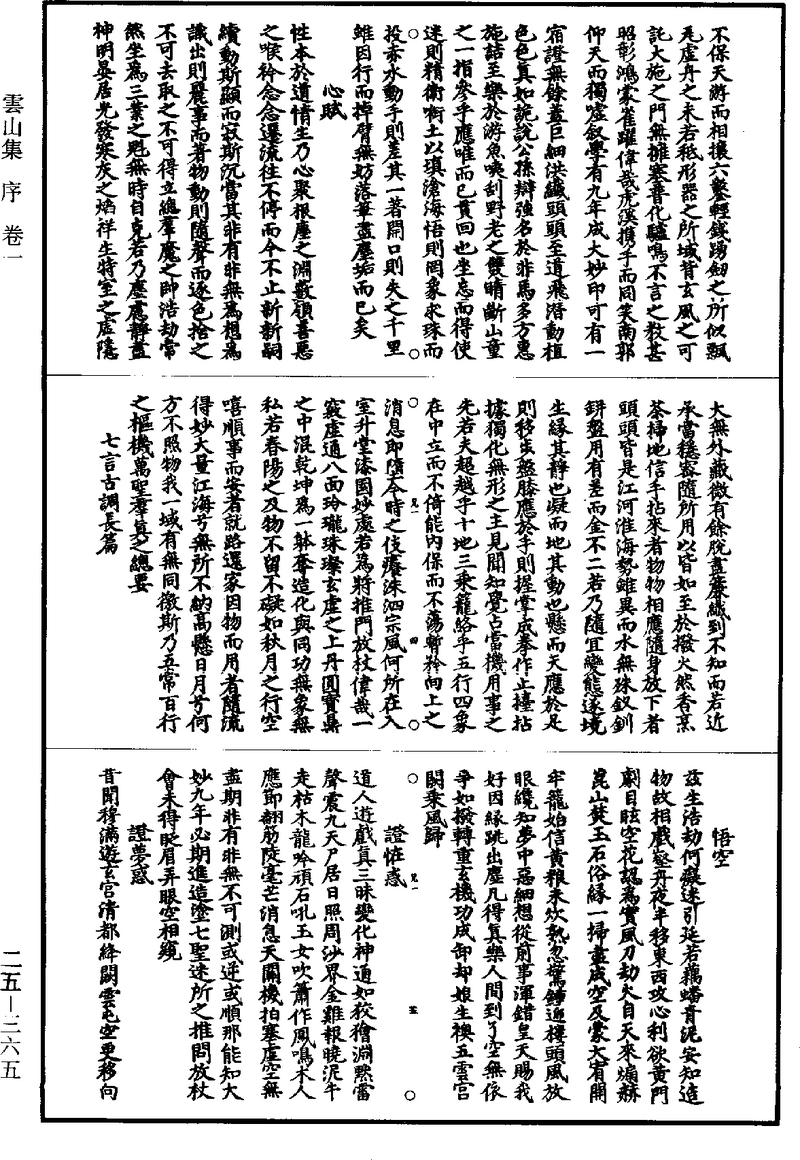 雲山集 序 卷一
不保天游而相攘六鑿輕錢踢劒之所似飄
瓦虛舟之未若秪形器之所域昔玄風之可
託大施之門無擁塞普化驢鳴不言之教甚
昭彰鴻蒙雀躍偉哉虎溪携手而同笑南郭
仰天而獨噓叙學有九年成大妙印可有一
宿證無餘蓋巨細洪纖頭頭至道飛潛動植
色色真如詭說公孫辯強名於非馬多方惠
施詰至樂於游魚喚刮野老之雙睛斷山童
之一指參乎應唯而已貫回也坐忘而得使
迷則精衛銜土以填滄海悟則罔象求珠而
投赤水動手則差其一著開口則失之千里
雖因行而掉臂無妨落筆盡塵垢而已矣
心賦
性本於道情生乃心聚根塵之淵藪領善惡
之喉衿念念還流往不停而今不止新新嗣
續動斯顯而寂斯沉當其非有非無爲想爲
識出則麗事而著物動則隨聲而逐色捨之
不可去取之不可得立緫羣魔之帥浩劫常
然坐爲三業之魁無時自克若乃塵慮靜盡
神明晏居光發寒灰之焰祥生特室之虛隱
大無外蔽微有餘脫盡廉纖到不知而若近
承當穩密隨所用以皆如至於撥火然香烹
茶掃地信手拈來者物物相應隨身放下者
頭頭皆是江河淮海勢雖異而水無殊釵釧
缾盤用有差而金不二若乃隨宜變態逐境
生緣其靜也凝而地其動也懸而天應於足
則移步盤膝應於手則握掌成拳作止擡拈
據獨化無形之主見聞知覺占當機用事之
先若夫超越乎十地三乘籠絡乎五行四象
在中立而不倚能內保而不蕩暫衿向上之
消息即隨今時之伎癢洙泗宗風何所在入
室升堂漆園妙處若爲將推門放杖偉哉一
竅虛通八面玲瓏珠璨玄虛之上丹圓寶鼎
之中混乾坤爲一躰奪造化與同功無象無
私若春陽之及物不留不礙如秋月之行空
嘻順事而安者就路還家因物而用者隨流
得妙大量江海兮無所不納高懸日月兮何
方不照物我一域有無同徼斯乃五常百行
之樞機萬聖羣真之總要
七言古調長篇
悟空
兹生浩劫何癡迷引延若藕蟠青泥安知造
物故相戲壑舟夜半移東西攻心利欲黃門
劇目眩空花認為實風刀劫火自天來煽赫
崑山焚玉石俗緣一掃盡成空及蒙大宥開
牢籠始信黃粮未炊熟忽驚鍾迎樓頭風放
眼纔知夢中惡細想從前事渾錯皇天賜我
好因緣跳出塵凡得真樂人間到了空無依
爭如撥轉重玄機功成卸却娘生襖五雲宮
闕乘風歸
證恠惑
道人遊戲真三昧變化神通如狡獪淵默雷
聲震九天尸居日照周沙界金雞報曉泥牛
走枯木龍吟頑石吼玉女吹簫作鳳鳴木人
應節翻筋陡毫芒消息天關機拍塞虛空無
盡期非有非無不可測或逆或順那能知大
妙九年必期進造塗七聖迷所之推問放杖
會未得眨眉弄眼空相窺
證夢惑
昔聞穆滿遊玄宮清都絳闕雲屯空更移向
二五—三六五